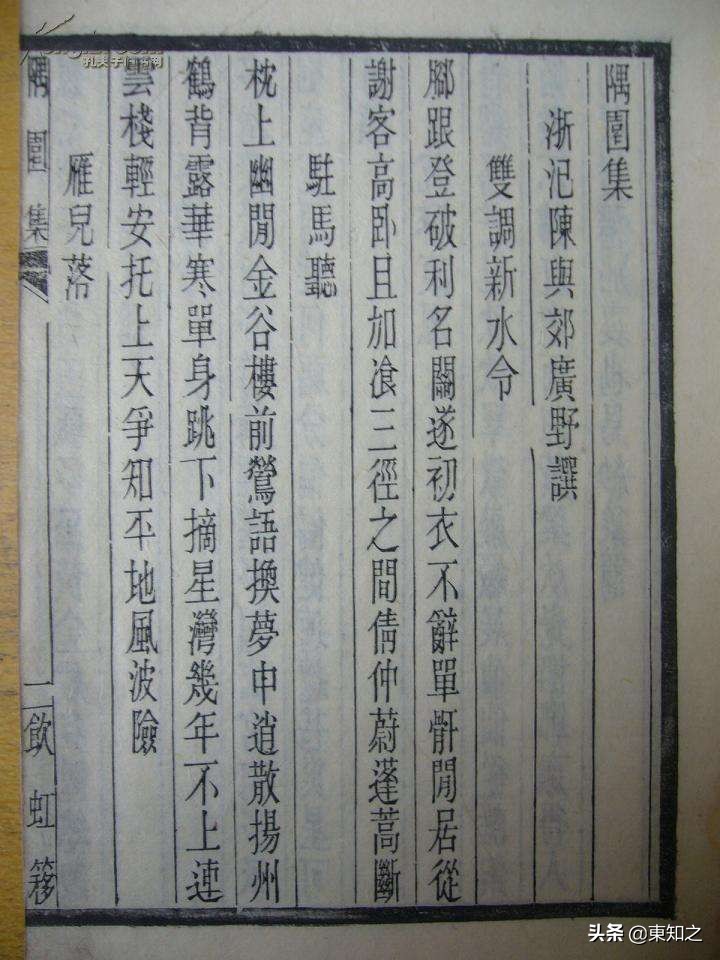 隅園集
浙汜陳與郊廣野譔
雙調新水令
腳跟登破利名關遂初衣不辭單骭閒居從
謝客高卧且加飡三徑之間倩仲蔚蓬蒿斷
駐馬聽
枕上幽閒金谷樓前鶯語換夢中逍散揚州
鶴背露華寒單身跳下摘星灣幾年不上連
雲棧輕安托上天爭知平地風波險
雁兒落
隅園集
一飲虹簃
孔夫子旧书网
头条 @東知之